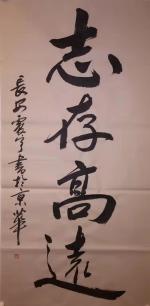 志存高遠
長安震宇書於京華